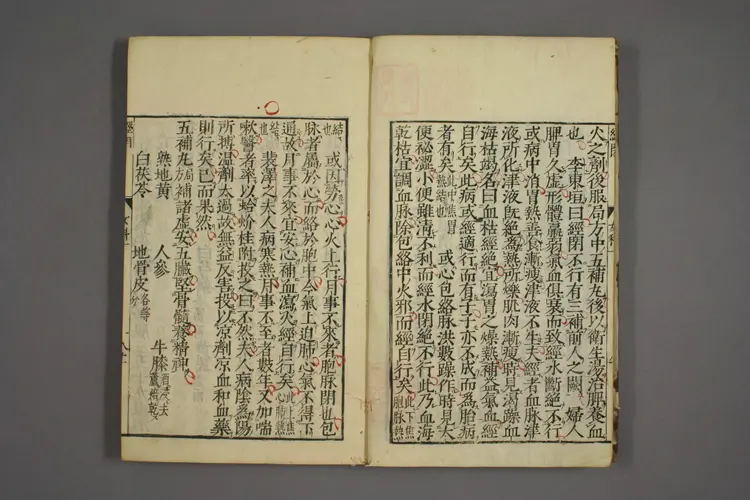 火之劑後服局方中五補丸後以衛生湯治脾養血
也 李東垣曰經閉不行有三補前人之闕 婦人
脾胃久虛形體羸弱氣血俱衰而致經水斷絕不行
或病中消胃熱善食漸瘦津液不生夫經者血脉津
液所化津液既絕為熱所爍肌肉漸瘦時見渴躁血
海枯竭名曰血枯經絕宜瀉胃之燥熱補益氣血經
自行矣此病或經適行而有子子亦不成而為胎病
者有矣此中焦胃熱結也 或心包絡脉洪數躁作時見大
便秘澀小便難清不利而經水閉絕不行此乃血海
乾枯宜調血脉除包絡中火邪而經自行矣此下焦胞脉熱
結也 或因勞心心火上行月事不來者胞脉閉也包
脉者屬於心而絡於胞中今氣上迫肺心氣不得下
通故月事不來宜安心補血瀉火經自行矣此上焦心肺熱
結也 裴澤之夫人病寒熱月事不至者數年又加喘
嗽醫者率以蛤蚧桂附投之曰不然夫人病陰為陽
所搏溫劑太過故無益反害投以凉劑凉血和血藥
則行矣已而果然
五補丸局方補諸虛安五臟堅骨髓養精神
熟地黃 人參 牛膝酒浸去蘆焙乾
白茯苓 地骨皮各等分